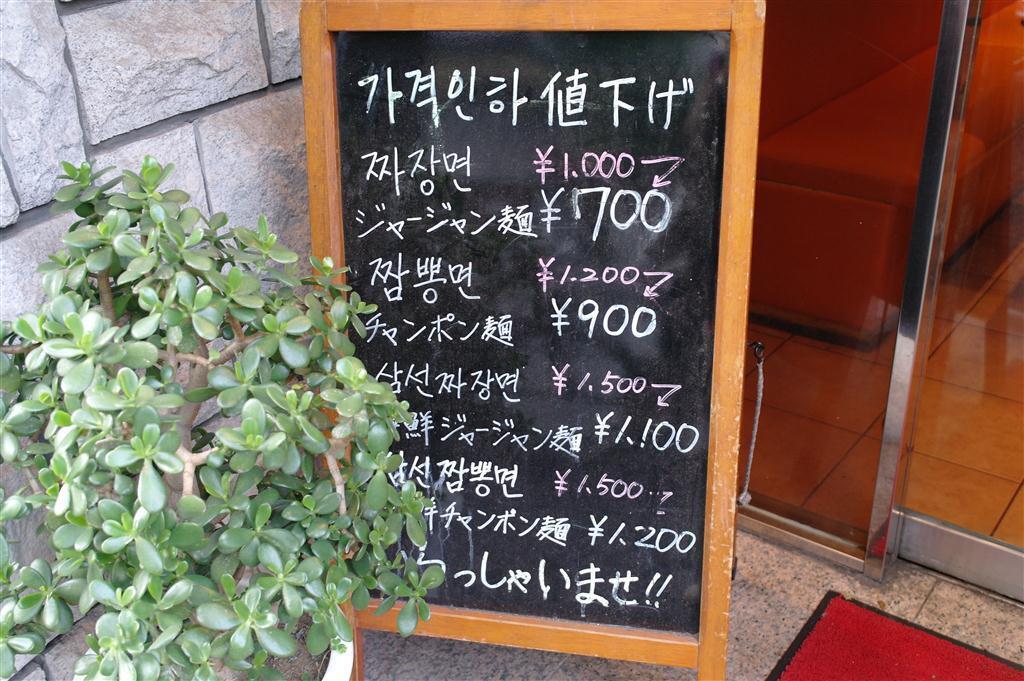 가격인하 値下げ
짜장면 ¥1.000
ジャージャン麺 ¥700
짬뽕면 ¥1.200
チャンポン麺 ¥900
삼선짜장면 ¥1.500
鮮ジャージャン麺 ¥1.100
삼선짬뽕면 ¥1.500
鮮チャンポン麺 ¥1.200
らっしゃいませ!!